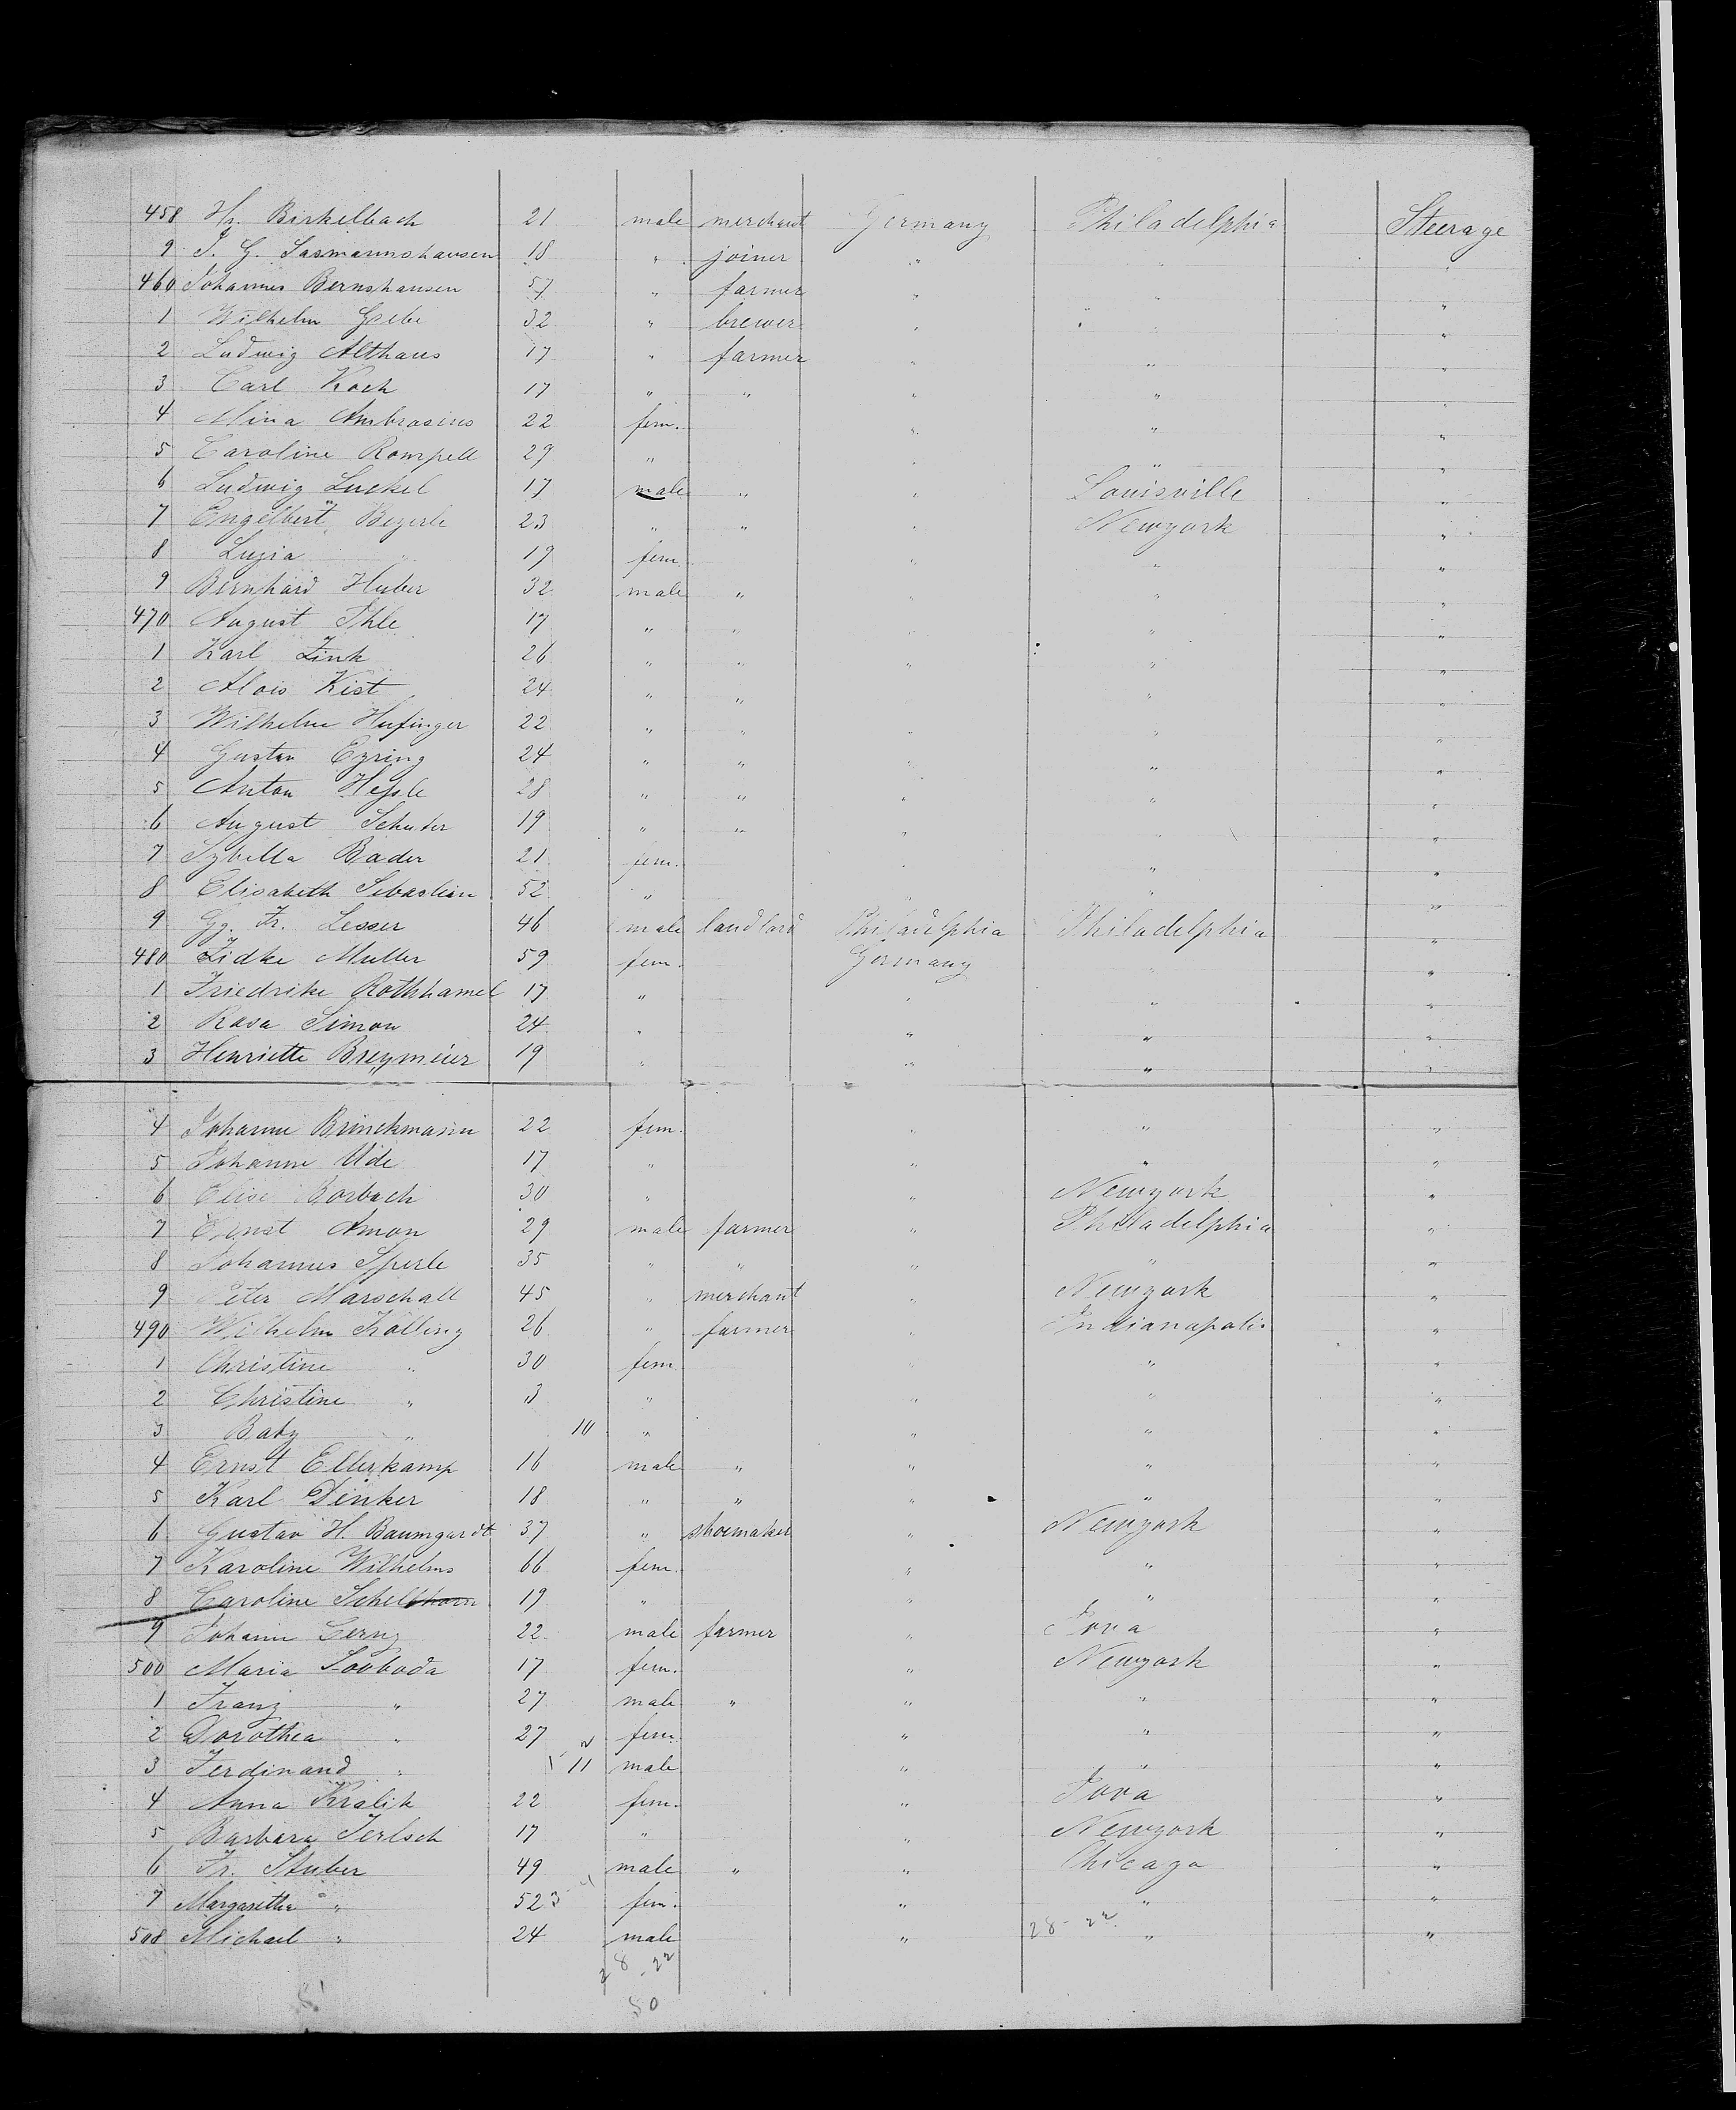 458 Hr. Birkelbach 21 male merchant Germany Philadelphia Steerage
9 J. G. Sasmannshausen 18 " joiner " " "
460 Johannes Bernshausen 57 " farmer " " "
1 Wilhelm Grebe 32 " brewer " " "
2 Ludwig Althaus 17 " farmer " " "
3 Carl Koch 17 " " " " "
4 Mina Ambrosius 22 fem. " " "
5 Caroline Rompell 29 " " " "
6 Ludwig Luckel 17 male " " Louisville "
7 Engelbert Beyerle 23 " " " Newyork "
8 Luzia " 19 fem. " " "
9 Bernhard Huber 32 male " " " "
470 August Ihle 17 " " " " "
1 Karl Zink 26 " " " " "
2 Alois Kist 24 " " " " "
3 Wilhelm Hufinger 22 " " " " "
4 Gustav Eyring 24 " " " " "
5 Anton Hessle 28 " " " " "
6 August Schuter 19 " " " " "
7 Sybilla Bader 21 fem. " " "
8 Elisabeth Sebastian 52 " " " "
9 Gg. Fr. Lesser 46 male landlord Philadelphia Philadelphia "
480 Lidke Muller 59 fem. Germany " "
1 Friedrike Rothhamel 17 " " " "
2 Rosa Simon 24 " " " "
3 Henriette Breymeier 19 " " " "
4 Johanne Brinckmann 22 fem. " " "
5 Johanne Ude 17 " " " "
6 Elise Borbach 30 " " Newyork "
7 Ernst Amon 29 male farmer " Philadelphia "
8 Johannes Sperle 35 " " " " "
9 Peter Marschall 45 " merchant " Newyork "
490 Wilhelm Kolling 26 " farmer " Indianapolis "
1 Christine " 30 fem. " "
2 Christine " 3 " " " "
3 Baby " 10 " " " "
4 Ernst Ellerkamp 16 male " " " "
5 Karl Dinker 18 " " " " "
6 Gustav H. Baumgardt 37 " shoemaker " Newyork "
7 Karoline Wilhelms 66 fem. " " "
8 Caroline Schellhorn 19 " " " "
9 Johann Cerny 22 male farmer " Iova "
500 Maria Sovboda 17 fem. " Newyork "
1 Franz " 27 male " " " "
2 Dorothea " 27 fem. " " "
3 Ferdinand " 11 male " " "
4 Anna Kralik 22 fem. " Iova "
5 Barbara Jerlsch 17 " " Newyork "
6 Fr. Stuber 49 male " " Chicago "
7 Margaretha " 52 fem. " " "
508 Michael " 24 male " 28-22 " "
28-22
51 50